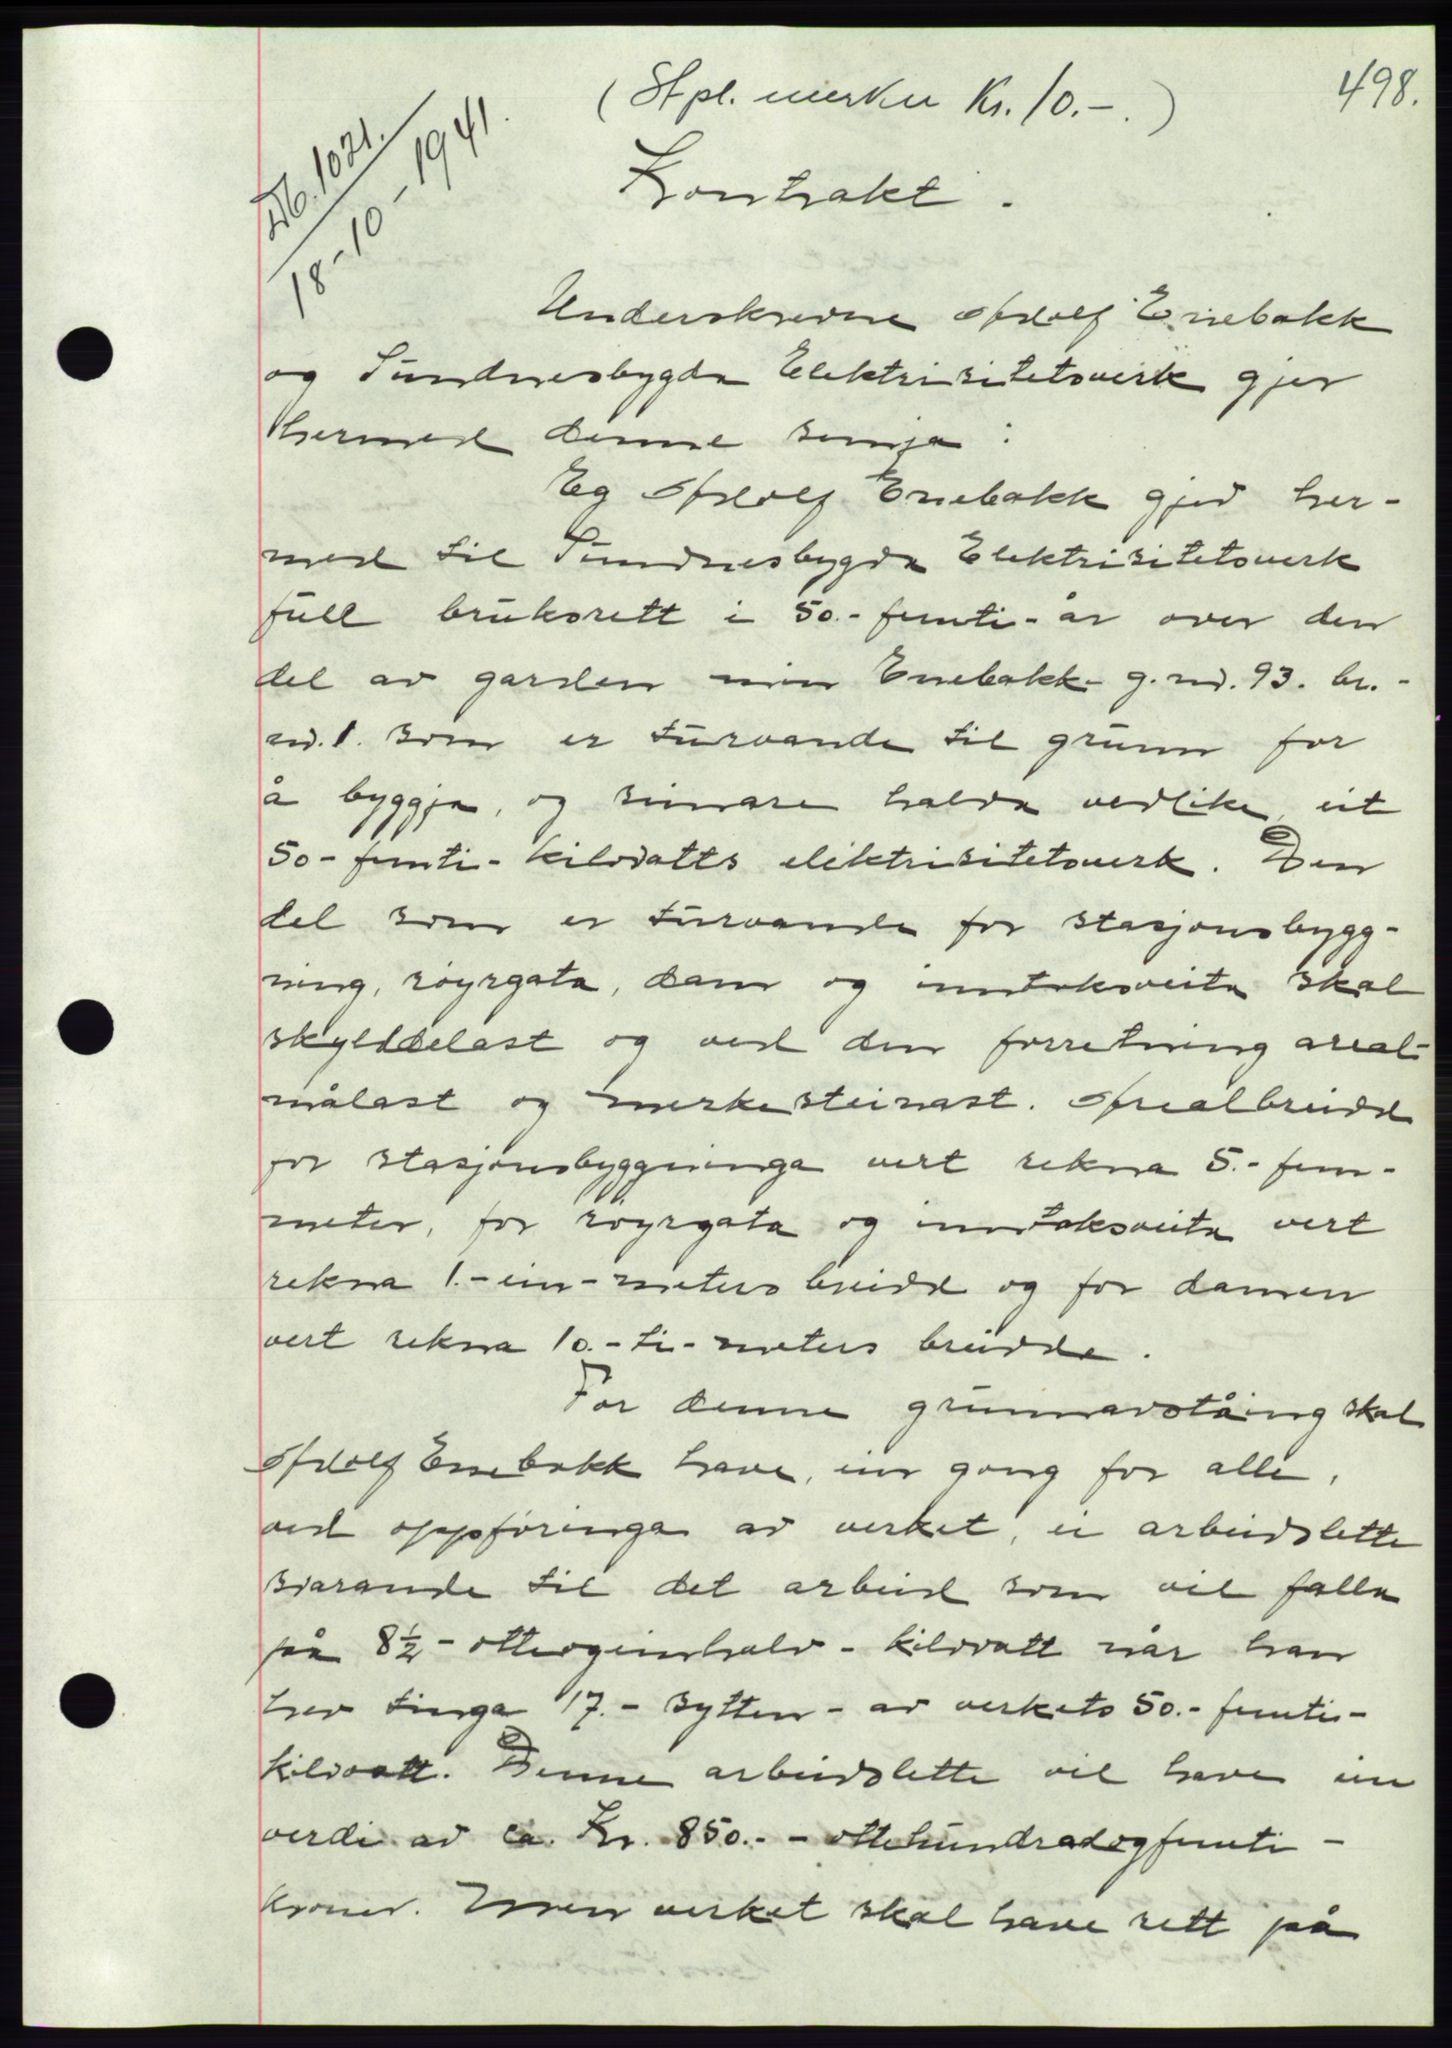 498.
(Stpl. merker Kr. 10.-.)
Db. 1021.
18-10-1941.
Kontrakt.
Underskrevne Adolf Enebakk
og Sundnesbygda Elektrisitetsverk gjer
hermed denne semja:
Eg Adolf Enebakk gjev her-
med til Sundnesbygda Elektrisitetsverk
full bruksrett i 50.- femti- år over den
del av garden min Enebakk g.nr. 93. br.-
nr. 1. som er turvande til grunn for
å byggja, og sinare halda vedlike, eit
50- femti- kilovatts elektrisitetsverk. Den
del som er turvande for stasjonsbygg-
ning, røyrgata, dam og inntaksveita skal
skylddelast og ved den forretning areal-
målast og merkesteinast. Arealbreidd
for stasjonsbyggninga vert rekna 5.- fem-
meter, for røyrgata og inntaksveita vert
rekna 1.- ein- meters breidd og for damen
vert rekna 10.- ti- meters breidde.
For denne grunnavståing skal
Adolf Enebakk have, ein gong for alle,
ved oppføringa av verket, ei arbeidslette
svarande til det arbeid som vil falla
på 8½ - otteogeinhalv - kilovatt når han
hev tinga 17.- sytten- av verkets 50.- femti-
kilovatt. Denne arbeidslette vil have ein
verdi av ca. Kr. 850.- - ottehundradogfemti -
kroner. Men verket skal have rett på